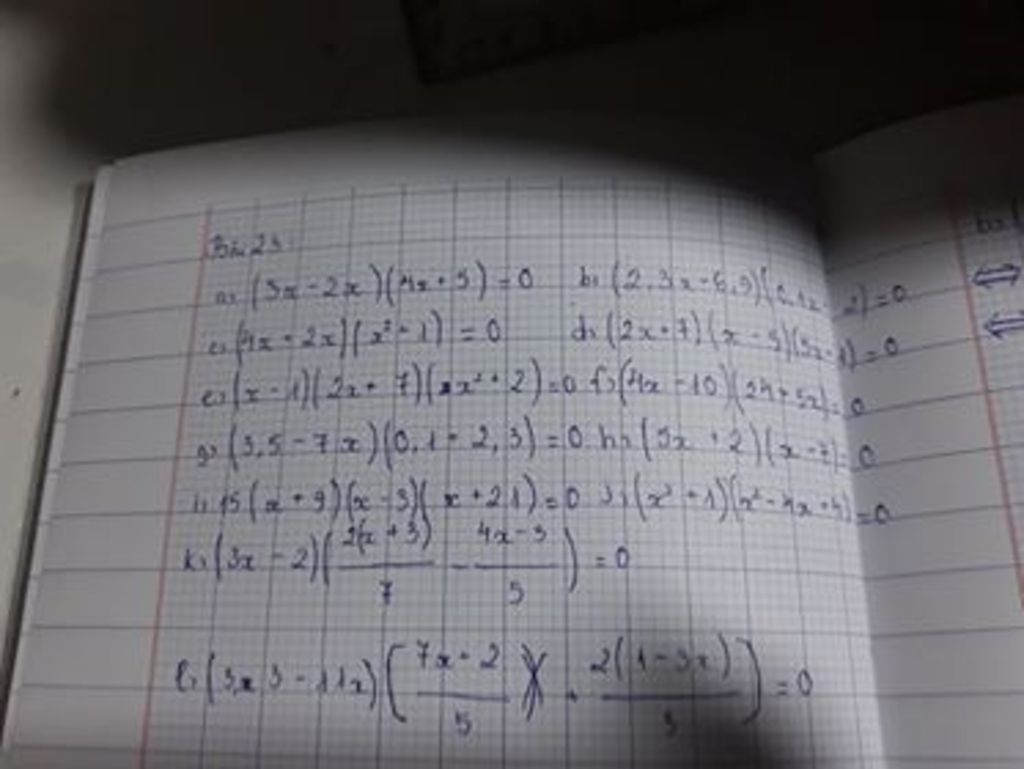 Bài 2:
a, (3x - 2x)(4x + 5) = 0 b, (2,3x - 6,9)(0,1x 2) = 0
c, (4x + 2x)(x² + 1) = 0 d, (2x + 7)(x - 5)(5x 1) = 0
e, (x - 1)(2x + 7)(x² + 2) = 0 f, (4x - 10)(24 + 5x) = 0
g, (3,5 - 7x)(0,1 + 2,3) = 0 h, (5x + 2)(x - 7) = 0
i, 15(x + 9)(x - 3)(x + 21) = 0 j, (x² + 1)(x² - 4x + 4) = 0
k, (3x - 2)(2(x + 3)/7 - 4x - 3/5) = 0
l, (3,3 - 11x)[7x + 2/5 + 2(1 - 3x)/3] = 0